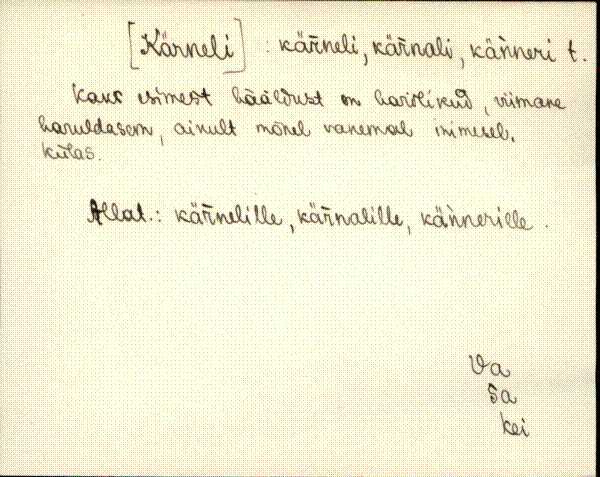 [Kärneli] : kär̄neli, kär̄nali, kän̄neri t.
Kaks esimest hääldust on harilikud, viimane
haruldasem, ainult mõnel vanemal inimesel.
külas.
Allat.: kär̄nelille, kär̄nalille, kän̄nerille.
Va
Sa
kei